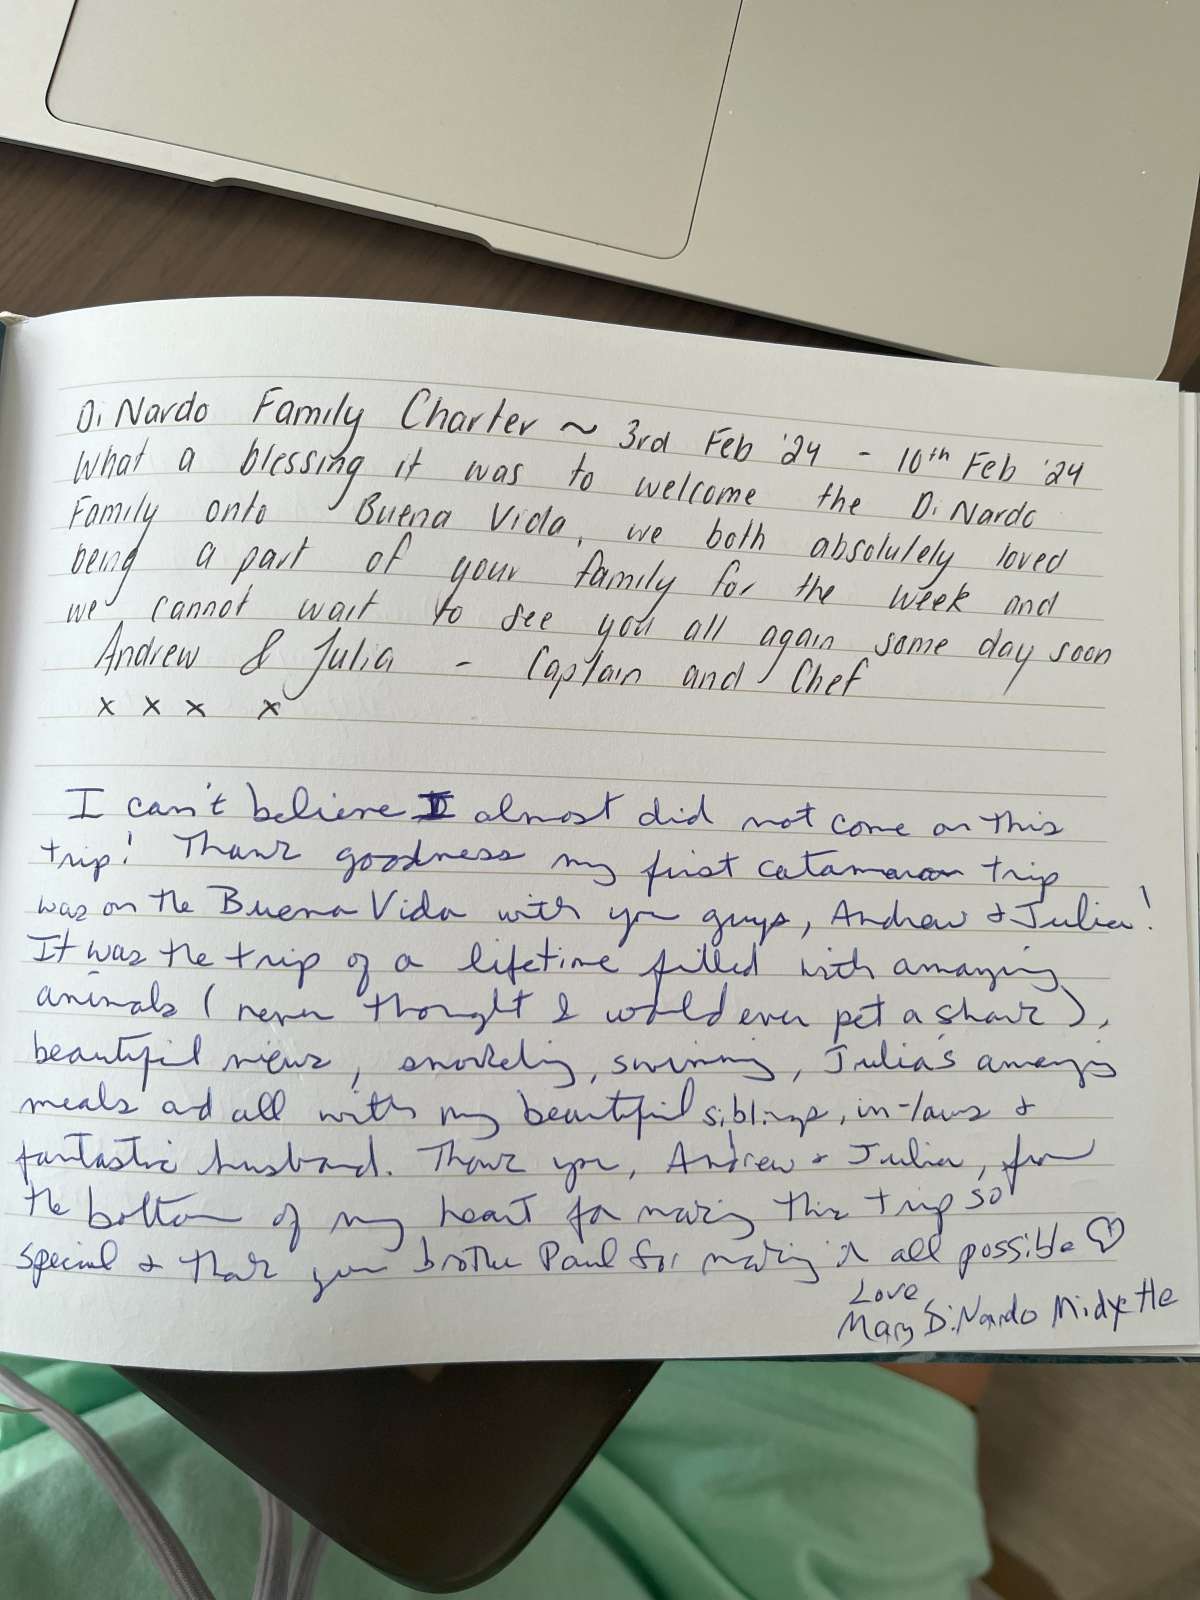 Di Nardo Family Charter ~ 3rd Feb '24 - 10th Feb '24
What a blessing it was to welcome the Di Nardo
Family onto Buena Vida, we both absolutely loved
being a part of your family for the week and
we cannot wait to see you all again some day soon
Andrew & Julia - Captain and Chef
x x x x
I can't believe I almost did not come on this
trip! Thank goodness my first catamaran trip
was on the Buena Vida with you guys, Andrew & Julia!
It was the trip of a lifetime filled with amazing
animals (never thought I would ever pet a shark),
beautiful views, snorkeling, swimming, Julia's amazing
meals and all with my beautiful siblings, in-laws &
fantastic husband. Thank you, Andrew & Julia, from
the bottom of my heart for making this trip so
special & thank you brother Paul for making it all possible ♡
Love,
Mary DiNardo Midyette